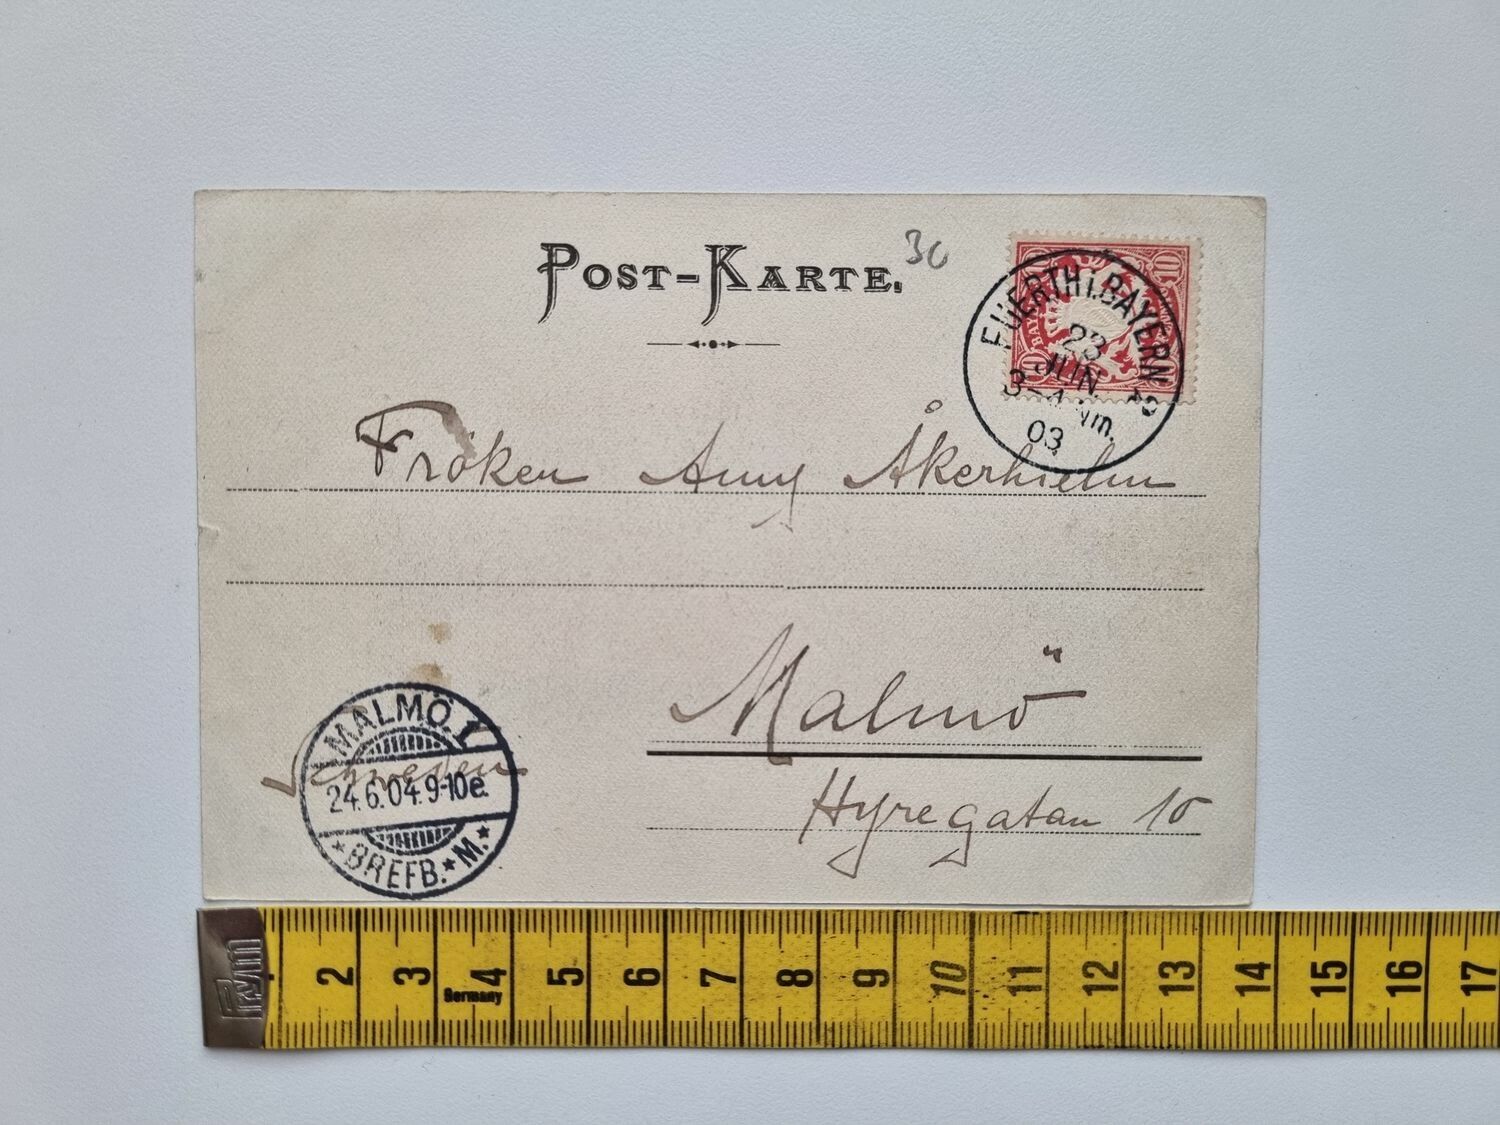 POST-KARTE.
30
10 10
BAYERN
FUERTH i. BAYERN 2
23
JUN.
3-4 Nm.
03
Fröken Anny Åkerhielm
Malmö
Hyregatan 10
Schweden
MALMÖ. 1
24.6.04.9-10e.
*BREFB.*M.*
Prym
2 3 4 5 6 7 8 9 10 11 12 13 14 15 16 17
Germany